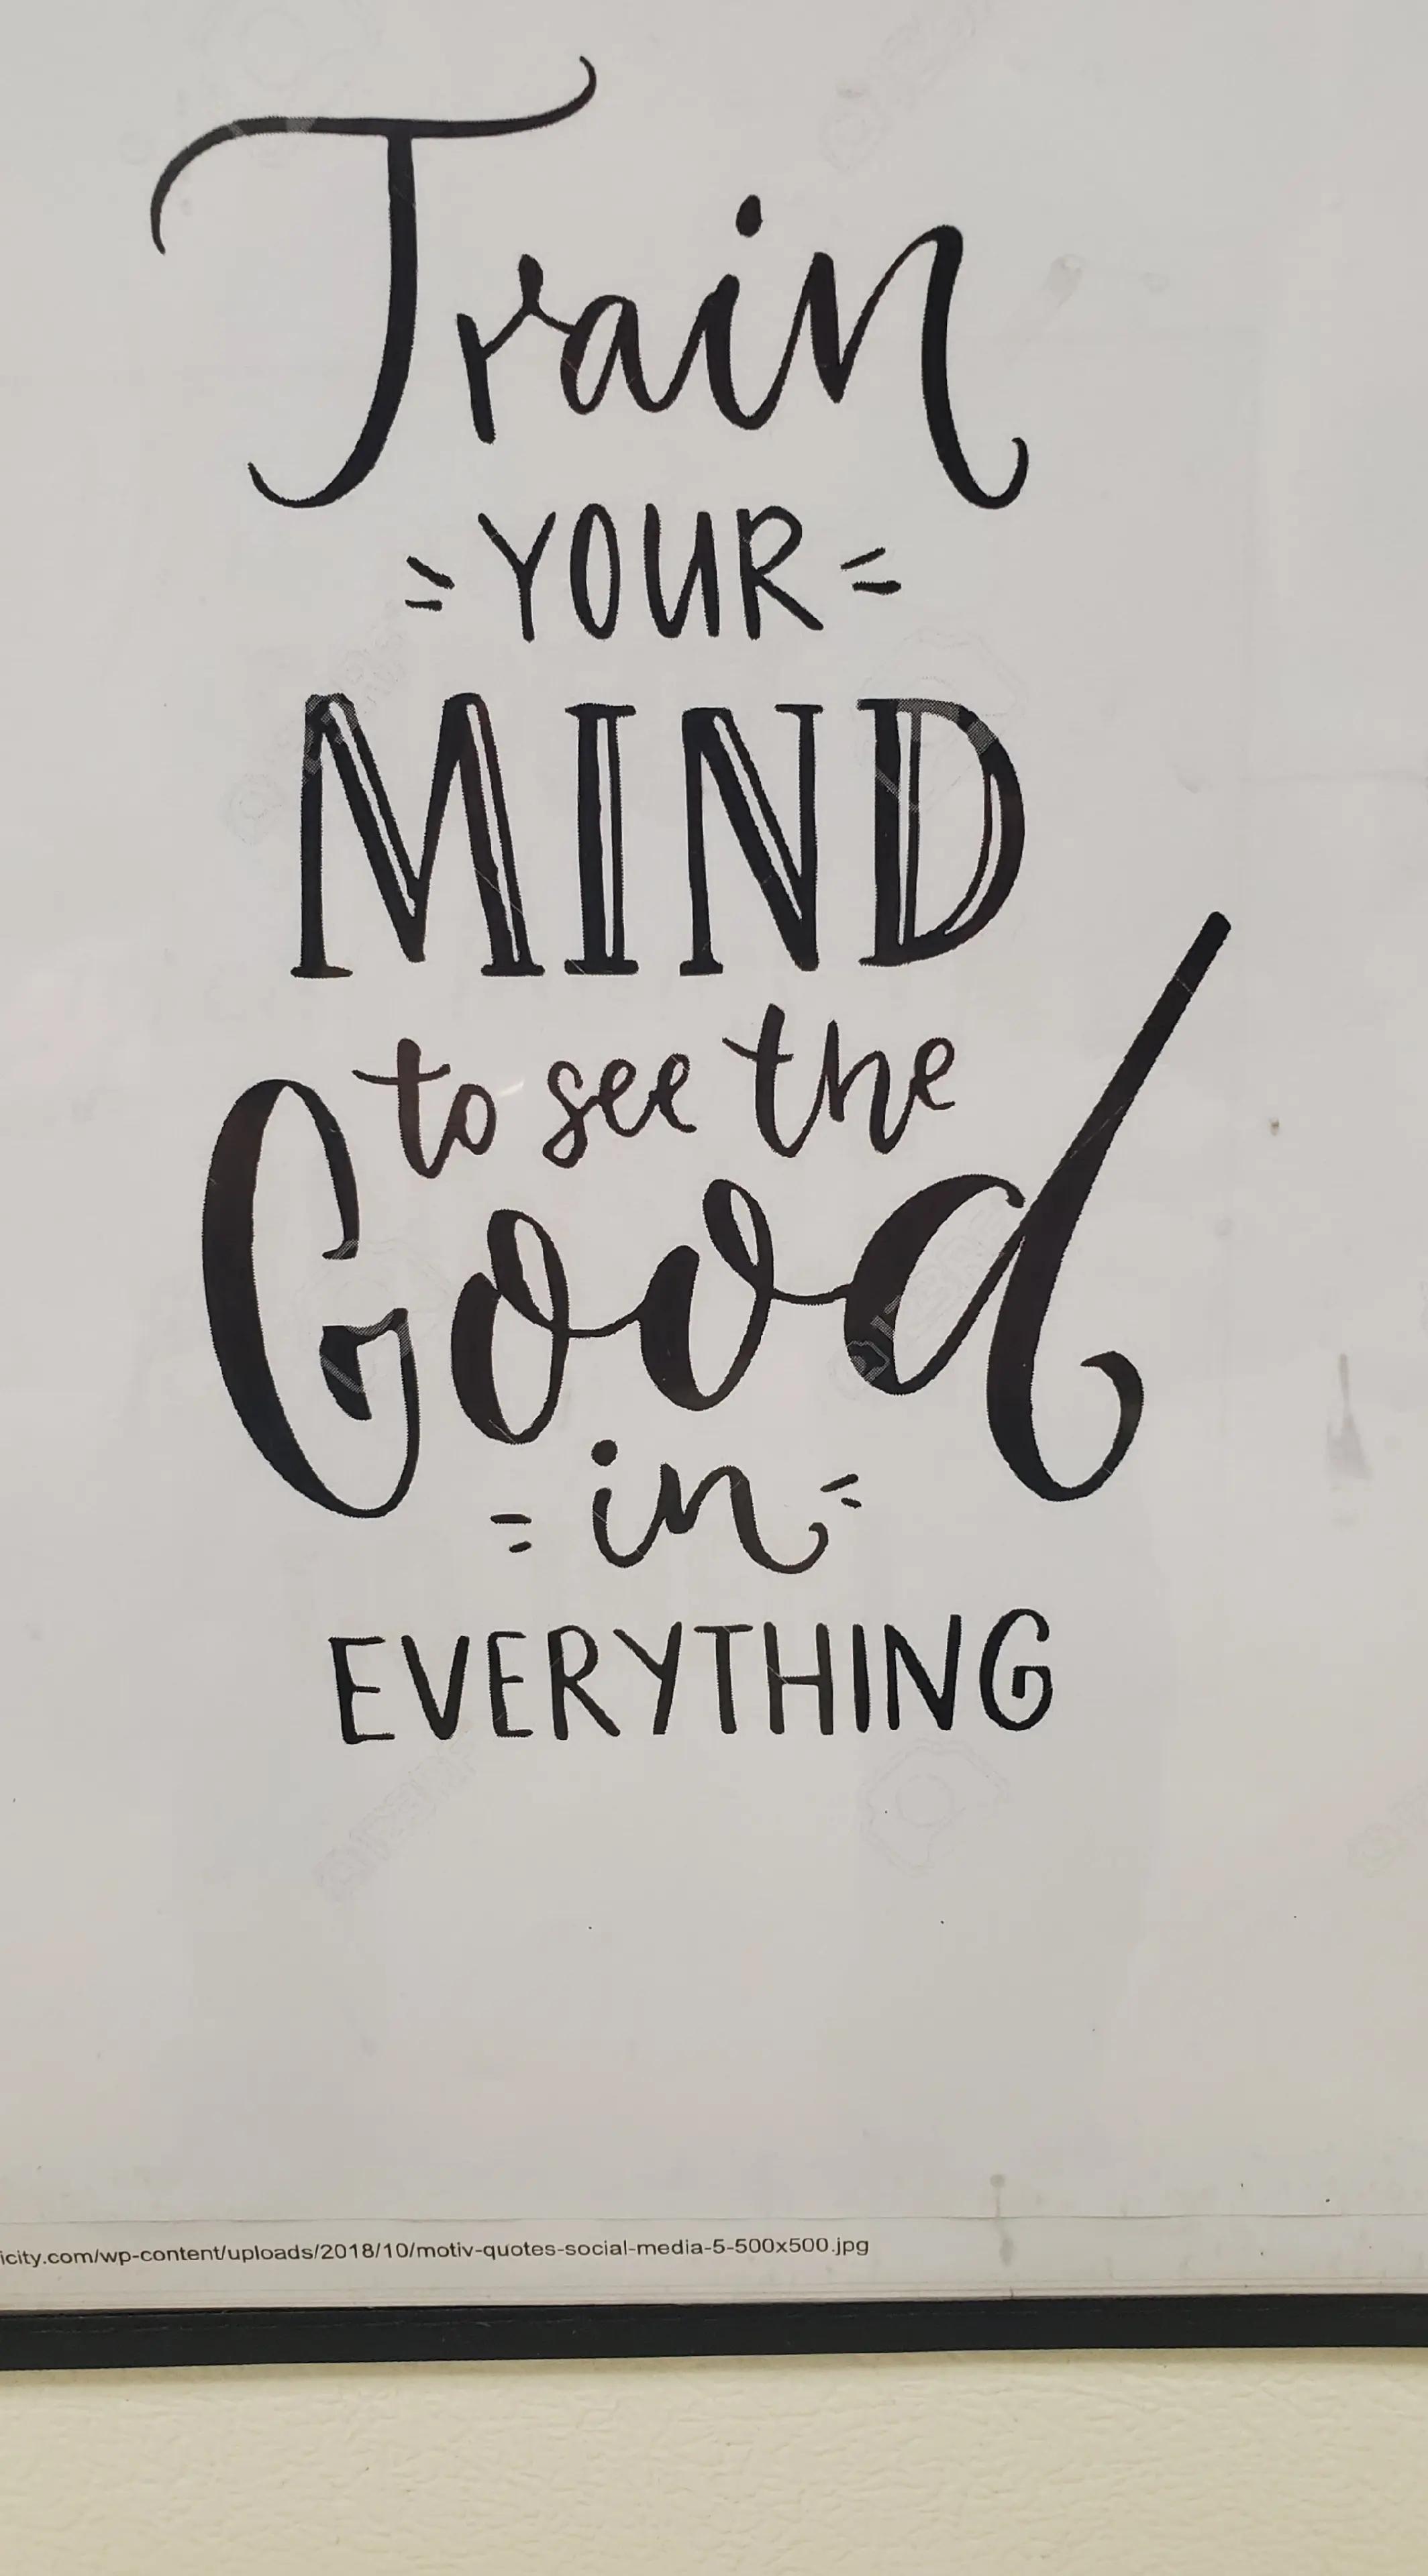 Train
YOUR
MIND
to see the
Good
in
EVERYTHING
icity.com/wp-content/uploads/2018/10/motiv-quotes-social-media-5-500x500.jpg